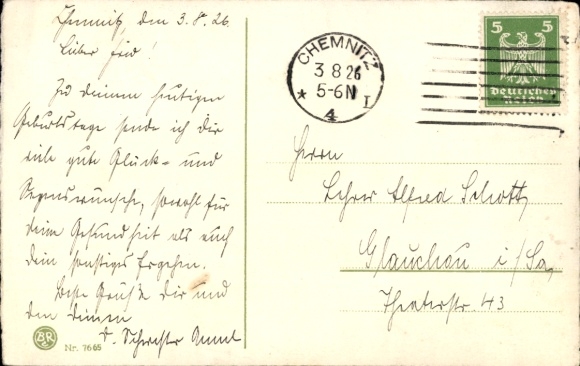 Chemnitz, den 3.8.26.
Lieber Frid!
Zu deinem heutigen
Geburtstage sende ich Dir
viele gute Glück- und
Segenswünsche, sowohl für
deine Gesundheit als auch
dein sonstiges Ergehen.
Beste Grüße Dir und
den deinen
d. Schwester Anna
BR
Nr. 7665
CHEMNITZ
3 8 26
5-6 N
* 4 I
5 5
Deutsches
Reich
Herrn
Lehrer Alfred Schott,
Glauchau i/Sa,
Theaterstr. 43